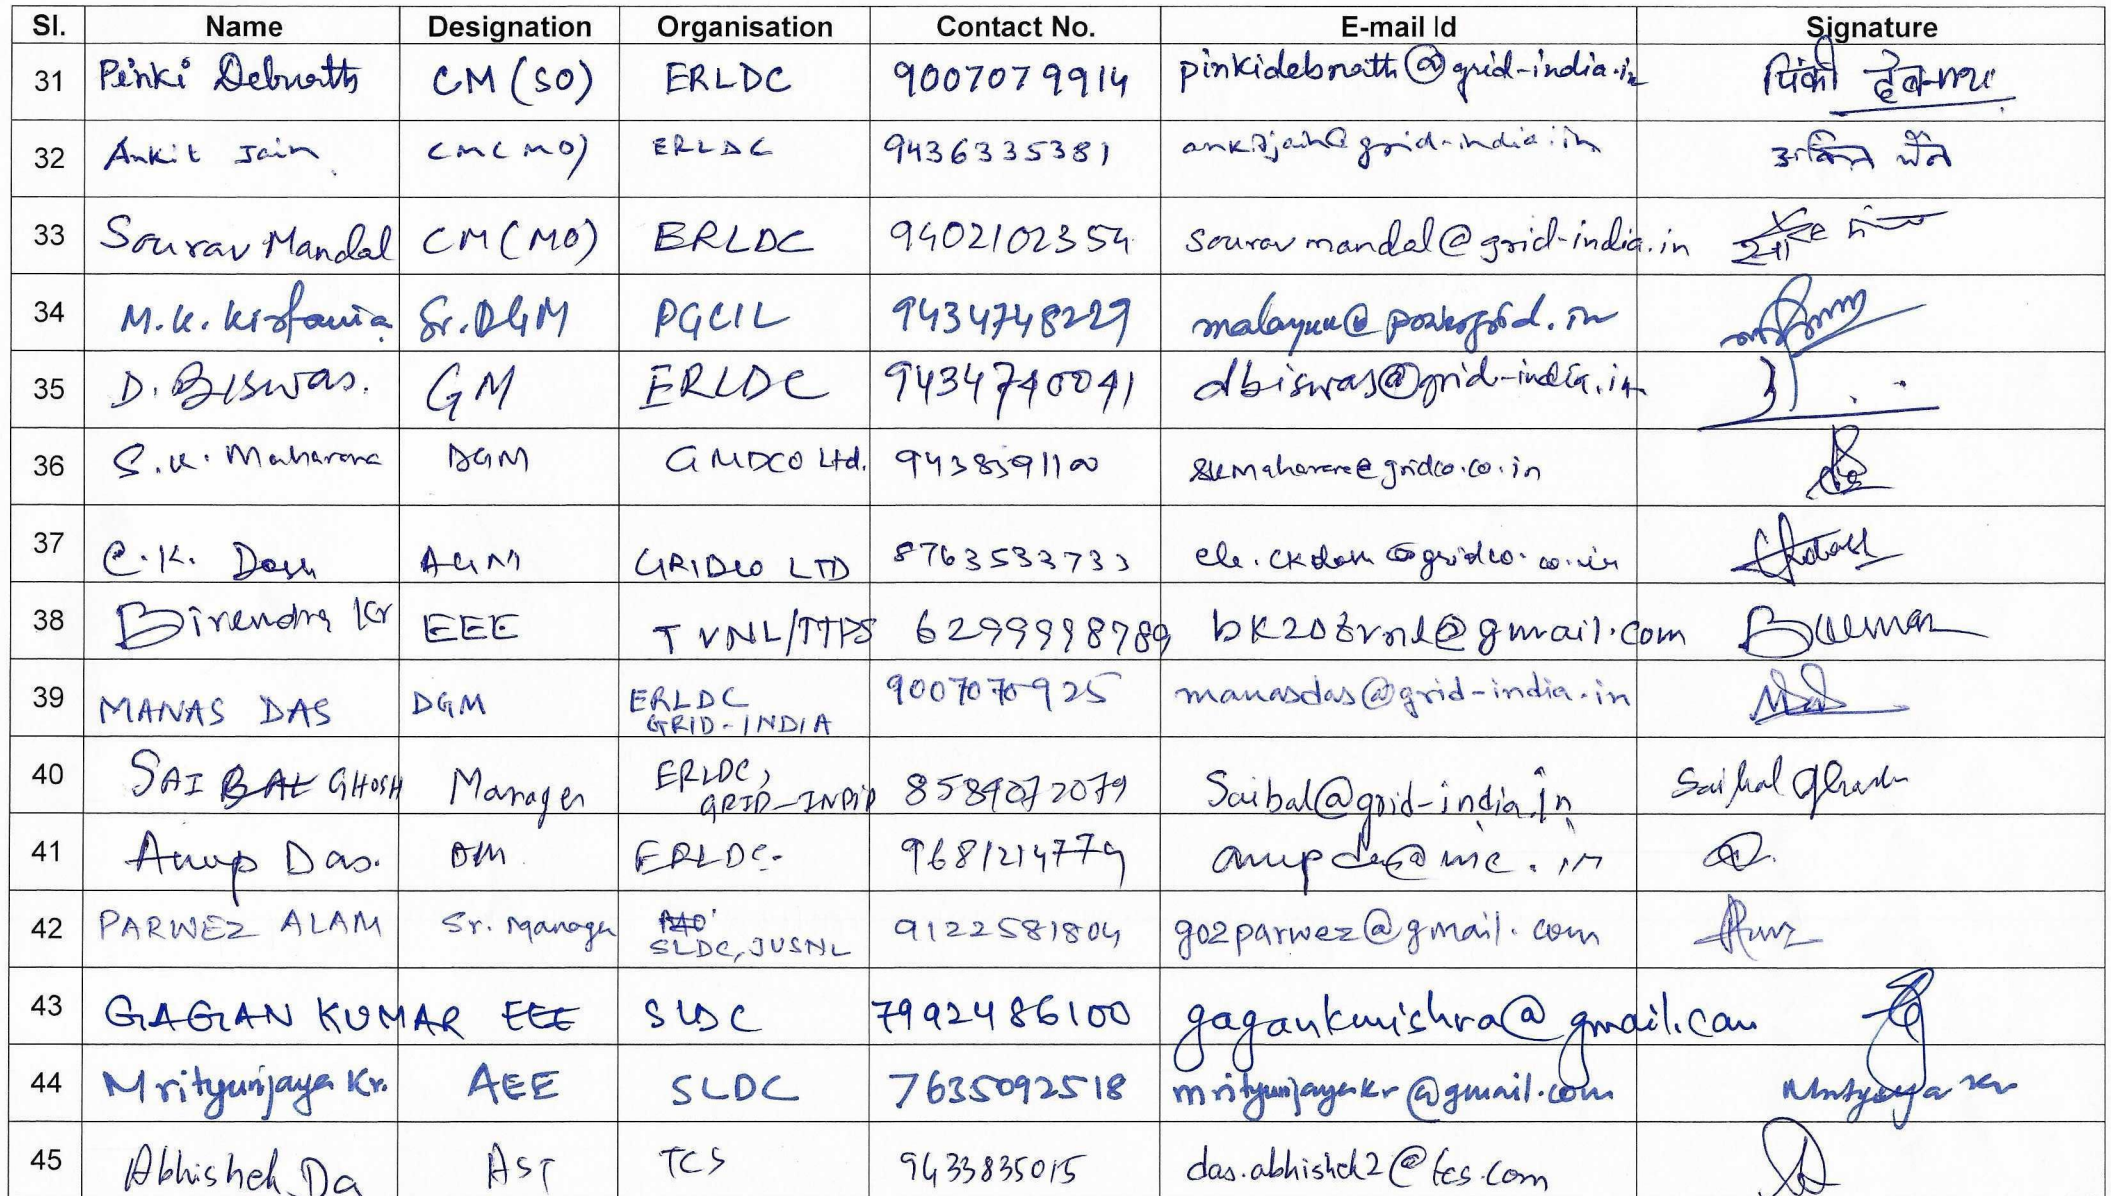 Sl. Name Designation Organisation Contact No. E-mail Id Signature
31 Pinki Debnath CM (SO) ERLDC 9007079914 pinkidebnath@grid-india.in पिंकी देबनाथ
32 Ankit Jain CM (MO) ERLDC 9436335381 ankitjain@grid-india.in अंकित जैन
33 Sourav Mandal CM (MO) ERLDC 9402102354 souravmandal@grid-india.in
34 Sr. DGM PGCIL 9434748229
35 D. BISWAS. GM ERLDC 9434740041 dbiswas@grid-india.in
36 S.K. Maharana DGM Ltd. 9438391100
37 C.K. Dash AGM GRIDCO LTD 8763533733 ele.ckdash@gridco.co.in
38 Birendra Kr EEE TVNL/TTPS 6299998789
39 MANAS DAS DGM ERLDC 9007070925 manasdas@grid-india.in
GRID-INDIA
40 SAIBAL GHOSH Manager ERLDC, 8584072079 Saibal@grid-india.in Saibal Ghosh
GRID-INDIA
41 Anup Das. ERLDC. 9681214779
42 PARWEZ ALAM Sr. Manager 9122581804 go2parwez@gmail.com
SLDC, JUSNL
43 GAGAN KUMAR EEE SLDC 7992486100 gagankmishra@gmail.com
44 Mrityunjaya Kr. AEE SLDC 7635092518 mrityunjayakr@gmail.com
45 Abhishek Da AST TCS 9433835015 das.abhishek2@tcs.com